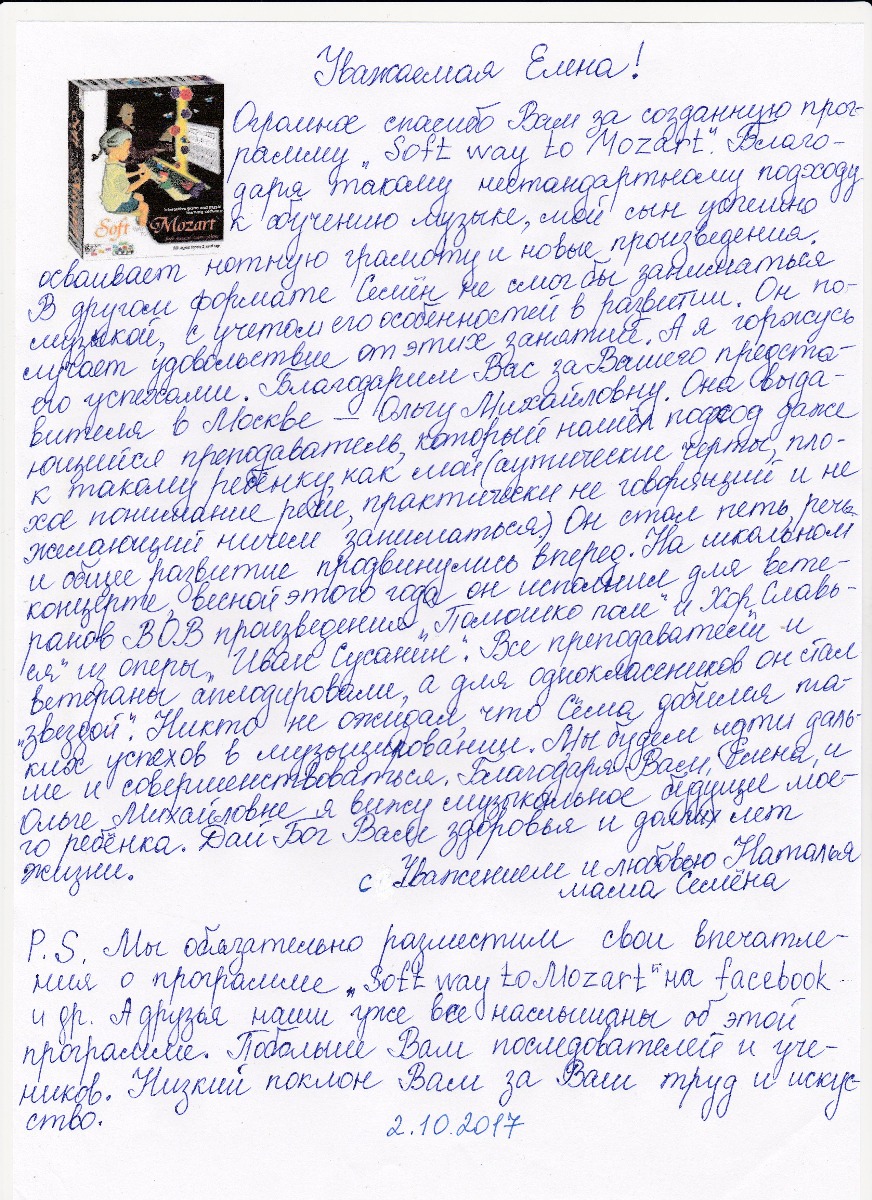 Уважаемая Елена!
Огромное спасибо Вам за созданную прог-
рамму „Soft way to Mozart". Благо-
даря такому нестандартному подходу
к обучению музыке, мой сын успешно
осваивает нотную грамоту и новые произведения.
В другом формате Семён не смог бы заниматься
музыкой, с учетом его особенностей в развитии. Он по-
лучает удовольствие от этих занятий. А я горжусь
его успехами. Благодарим Вас за Вашего предста-
вителя в Москве – Ольгу Михайловну. Она выда-
ющийся преподаватель, который нашёл подход даже
к такому ребёнку, как мой (аутические черты, пло-
хое понимание речи, практически не говорящий и не
желающий ничем заниматься). Он стал петь, речь
и общее развитие продвинулись вперед. На школьном
концерте, весной этого года, он исполнил для вете-
ранов ВОВ произведения „Полюшко поле" и Хор „Славь-
ся" из оперы „Иван Сусанин". Все преподаватели и
ветераны аплодировали, а для одноклассников он стал
„звездой". Никто не ожидал, что Сёма добился та-
ких успехов в музицировании. Мы будем идти даль-
ше и совершенствоваться. Благодаря Вам, Елена, и
Ольге Михайловне я вижу музыкальное будущее мое-
го ребёнка. Дай Бог Вам здоровья и долгих лет
жизни.
с Уважением и любовью Наталья
мама Семёна
P.S. Мы обязательно разместим свои впечатле-
ния о программе „Soft way to Mozart" на facebook
и др. А друзья наши уже все наслышаны об этой
программе. Побольше Вам последователей и уче-
ников. Низкий поклон Вам за Ваш труд и искус-
ство.
2.10.2017
Soft Mozart